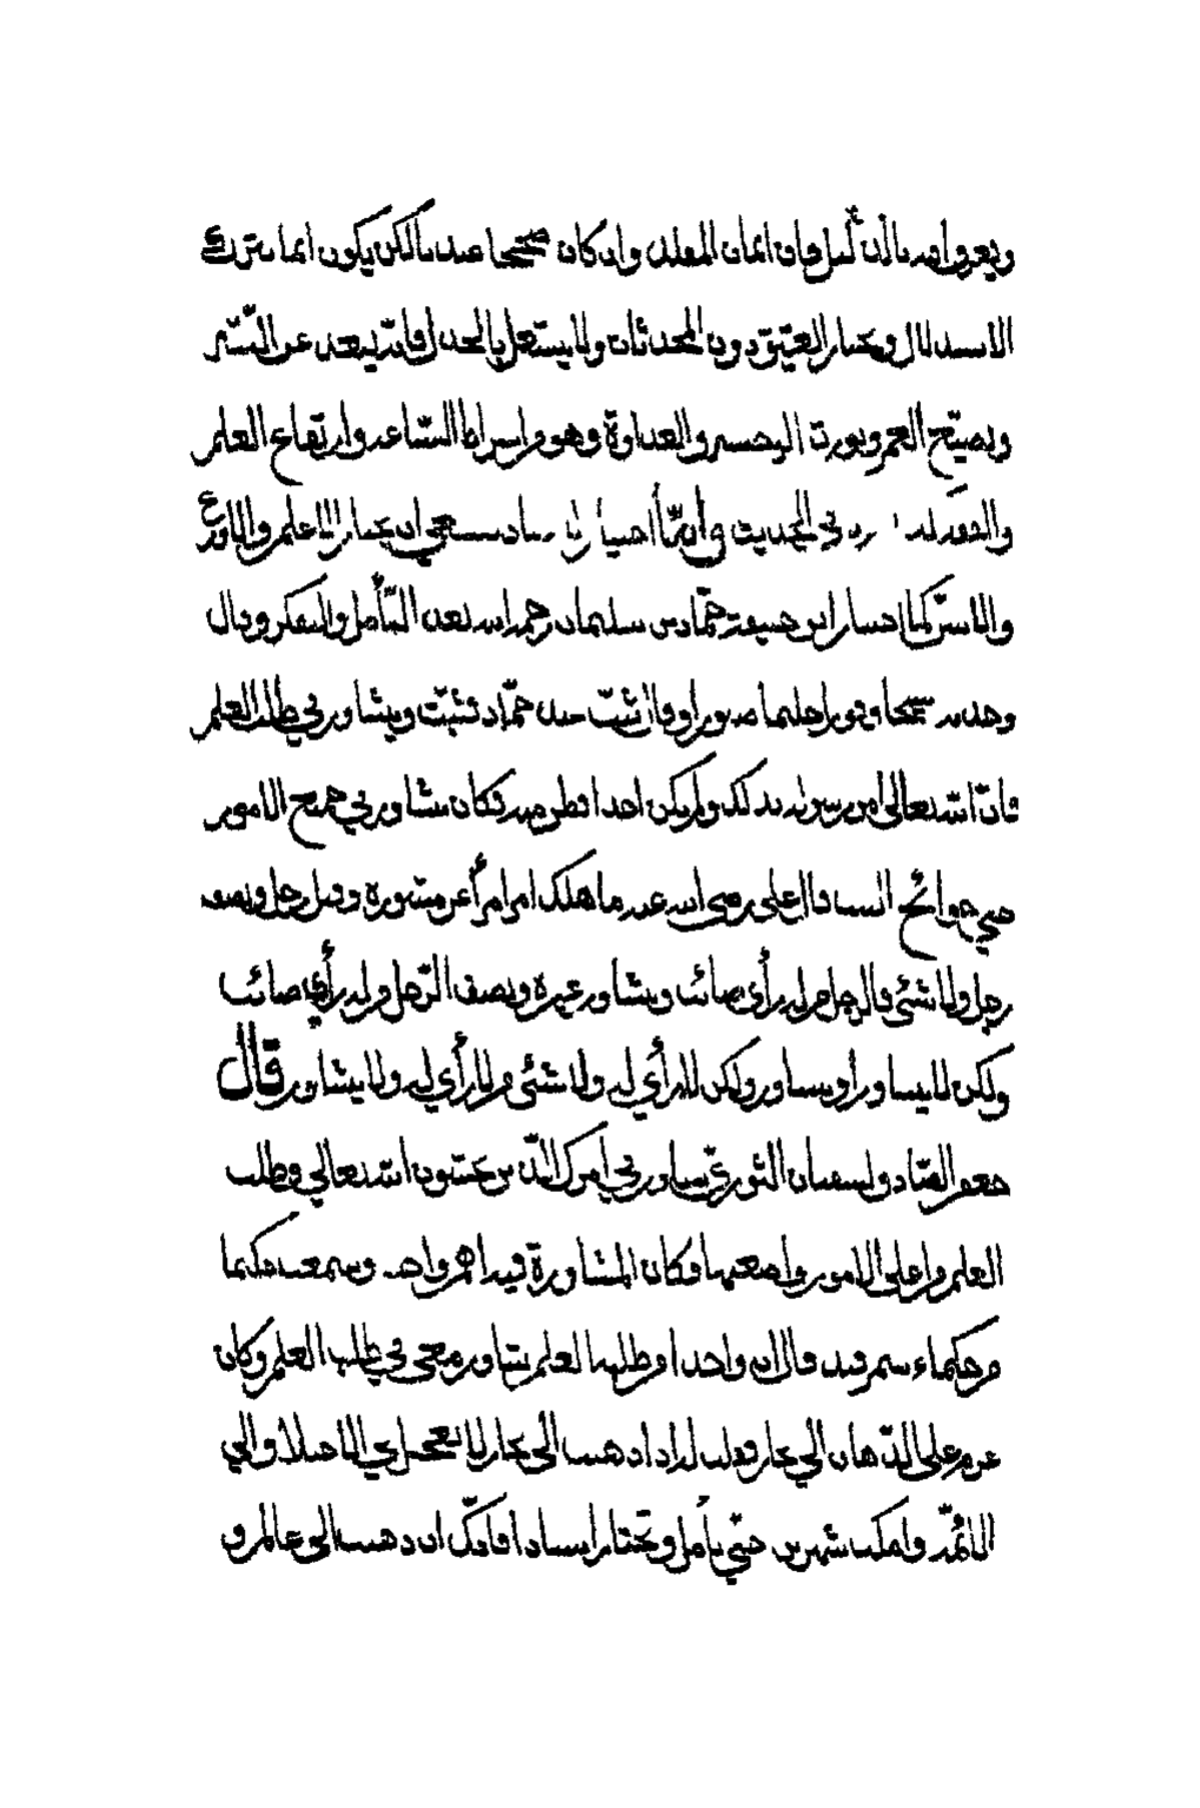 ويعرف الله بالدليل فان ايمان المقلد وان كان صحيحا عندنا لكن يكون اثما بترك
الاستدلال ويختار العتيق دون المحدثات ولا يشتغل بالجدل فانه يبعد عن
ويضيع العمر ويورث الوحشة والعداوة وهو من اشراط الساعة وارتفاع العلم
والفقه في الحديث اختيار الاستاد ينبغي ان يختار الاعلم والاورع
والاسن كما اختار ابو حنيفة حماد بن سليمان رحمه الله بعد التأمل والتفكر وقال
وجدته شيخا وقورا حليما صبورا وقال ثبت عند حماد فنبت ويشاور في طلب العلم
فان الله تعالى امر رسوله بذلك ولم يكن احد افطن منه فكان يشاور في جميع الامور
حتى حوائج البيت قال علي رضي الله عنه ما هلك امرأ عن مشورة وقيل رجل ونصف
رجل ولا شئ فالرجل من له رأي صائب ويشاور غيره ونصف الرجل من له رأي صائب
ولكن لا يشاور او يشاور ولكن لا رأي له ولا شئ من لا رأي له ولا يشاور قال
جعفر الصادق لسفيان الثوري شاور في امرك الذين يخشون الله تعالى وطلب
العلم من اعلى الامور واصعبها فكان المشاورة فيه اهم واجب وسمعت حكيما
من حكماء سمرقند قال ان واحدا من طلبة العلم يشاور معي في طلب العلم وكان
عزم على الذهاب الى بخار فقلت له اذا ذهبت الى بخار لا تعجل في الاختلاف الى
الائمة وامكث شهرين حتى تأمل وتختار استادا فانك ان ذهبت الى عالم و